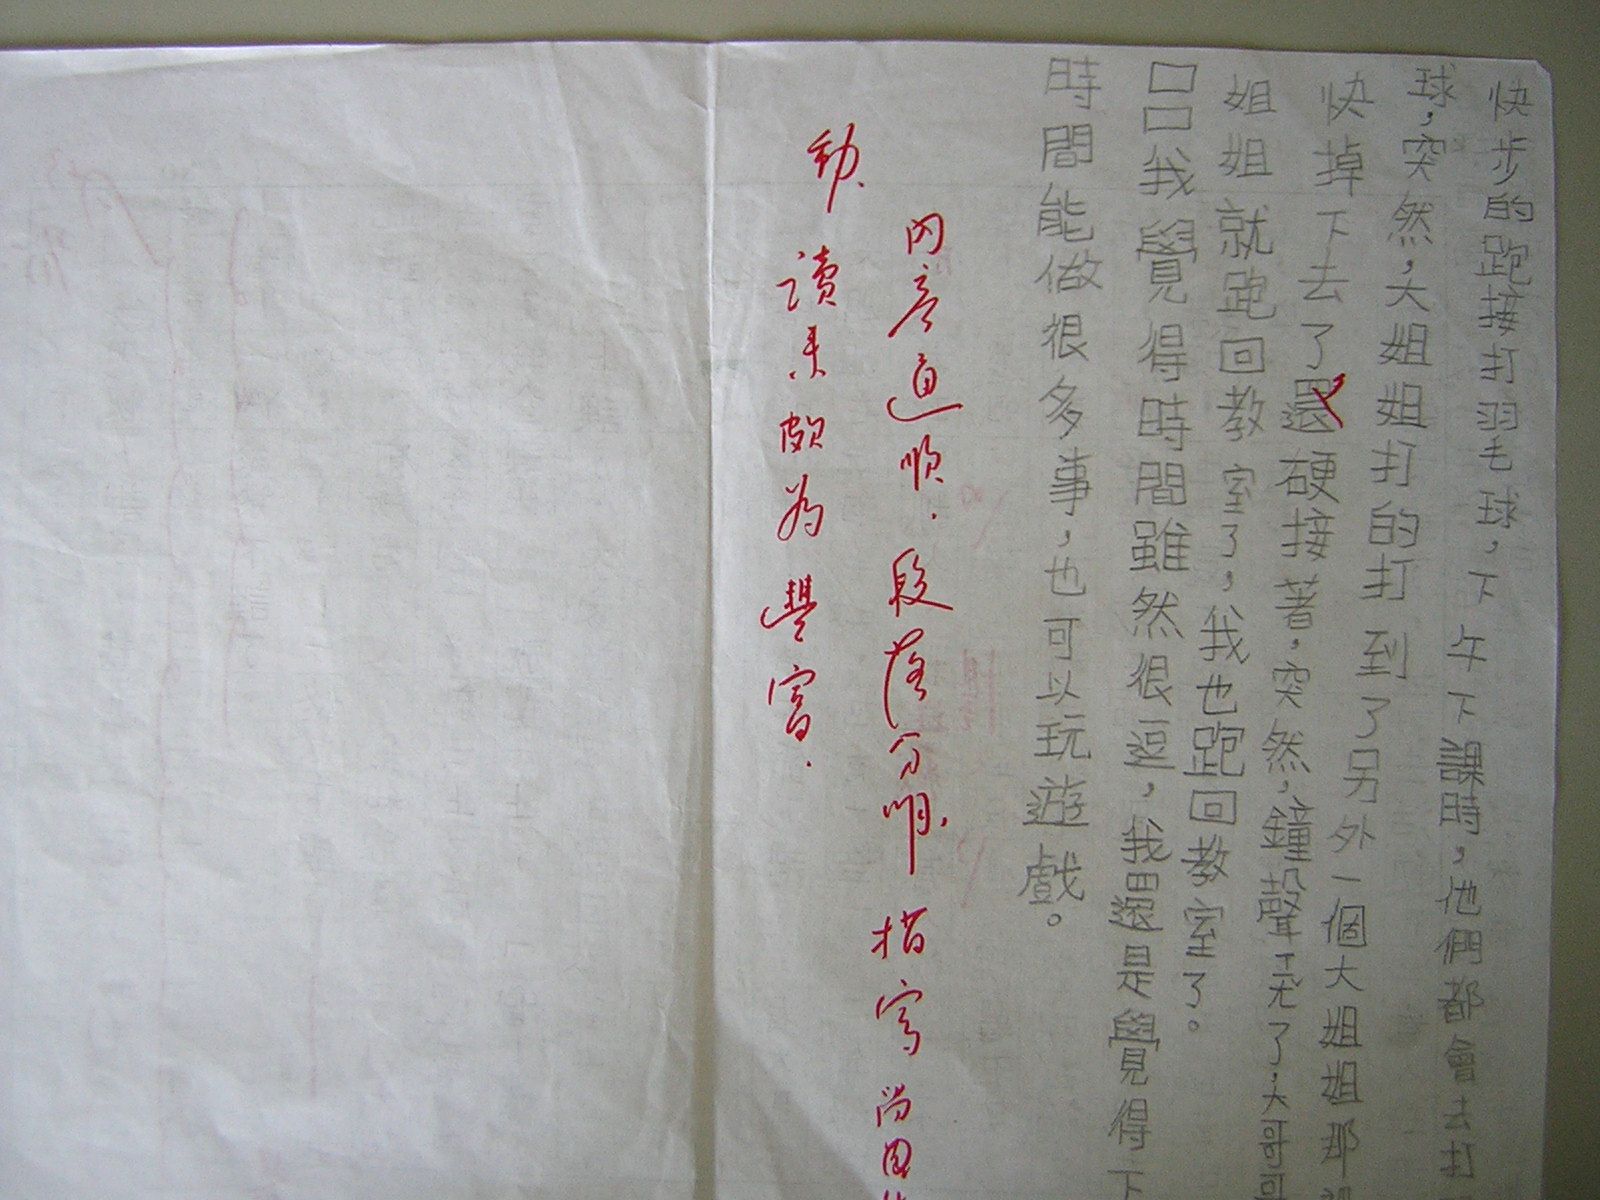 快步的跑接打羽毛球，下午下課時，他們都會去打
球，突然，大姐姐打的打到了另外一個大姐姐那
快掉下去了還硬接著，突然，鐘聲响了，大哥哥
姐姐就跑回教室了，我也跑回教室了。
我覺得時間雖然很逗，我還是覺得下
時間能做很多事，也可以玩遊戲。
內容通順．段落分明．描寫
動．讀來頗為豐富．